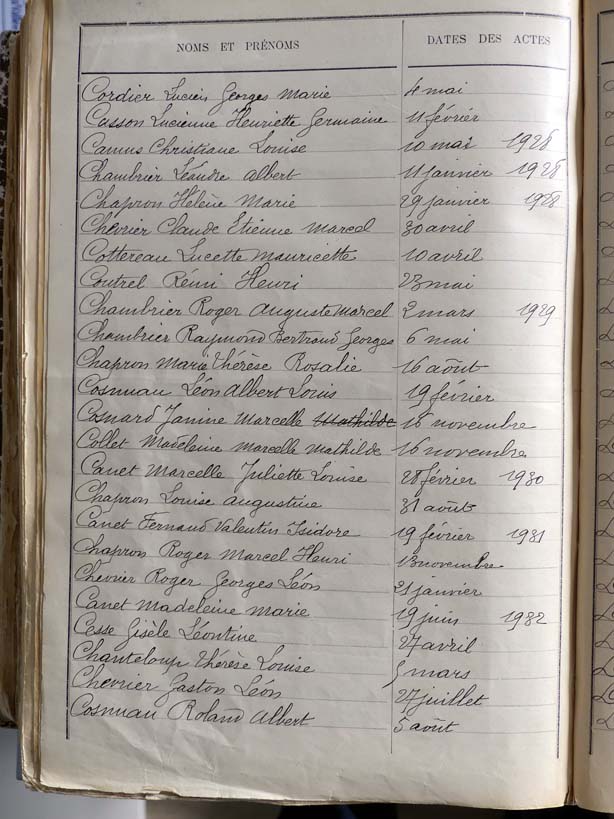 NOMS ET PRÉNOMS DATES DES ACTES
Cordier Lucien Georges Marie 4 mai
Cesson Lucienne Henriette Germaine 11 février
Camus Christiane Louise 10 mai 1928
Chambrier Léandre Albert 11 janvier 1928
Chapron Hélène Marie 29 janvier 1928
Chevrier Claude Etienne Marcel 30 avril
Cottereau Lucette Mauricette 10 avril
Coutrel Rémi Henri 23 mai
Chambrier Roger Auguste Marcel 2 mars 1929
Chambrier Raymond Bertrand Georges 6 mai
Chapron Marie Thérèse Rosalie 16 août
Cosnuau Léon Albert Louis 19 février
Cosnard Janine Marcelle Mathilde 16 novembre
Collet Madeleine Marcelle Mathilde 16 novembre
Canet Marcelle Juliette Louise 28 février 1930
Chapron Louise Augustine 31 août
Canet Fernand Valentin Isidore 19 février 1931
Chapron Roger Marcel Henri 13 novembre
Chevrier Roger Georges Léon 21 janvier
Canet Madeleine Marie 19 juin 1932
Cesse Gisèle Léontine 27 avril
Chanteloup Thérèse Louise 5 mars
Chevrier Gaston Léon 27 juillet
Cosnuau Roland Albert 5 août